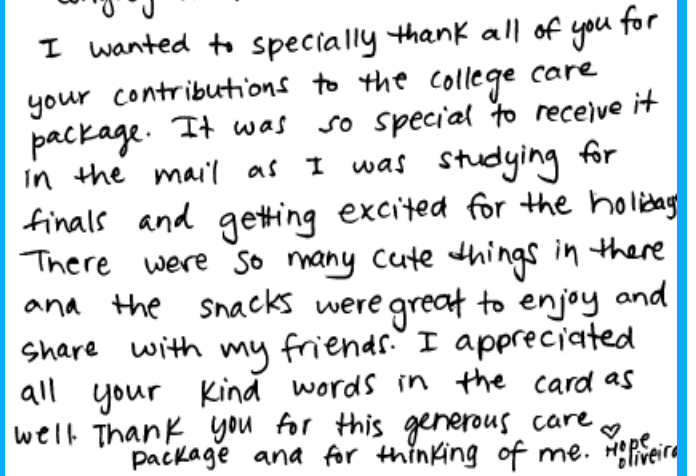 I wanted to specially thank all of you for
your contributions to the college care
package. It was so special to receive it
in the mail as I was studying for
finals and getting excited for the holiday
There were so many cute things in there
and the snacks were great to enjoy and
share with my friends. I appreciated
all your kind words in the card as
well. Thank you for this generous care
package and for thinking of me. Hope
Oliveira